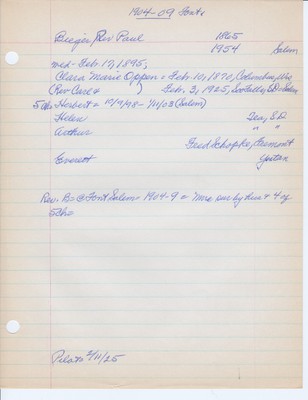 1904-09 Font
Bieger, Rev Paul 1865
1954 Salem
med - Feb. 17, 1895,
Clara Marie Oppen = Feb. 10, 1870, Columbus, Wis
(Rev Carl & ) Feb. 3, 1925, SD = Salem
5 ch = Herbert = 10/9/98 - 1/11/03 (Salem)
Helen S.D.
Arthur " "
Fred Schopke, Fremont
Everett
Rev. B = @ Font Salem = 1904-9 = Mrs. sur by hus & 4 of
5 ch =
Pilot = 2/11/25